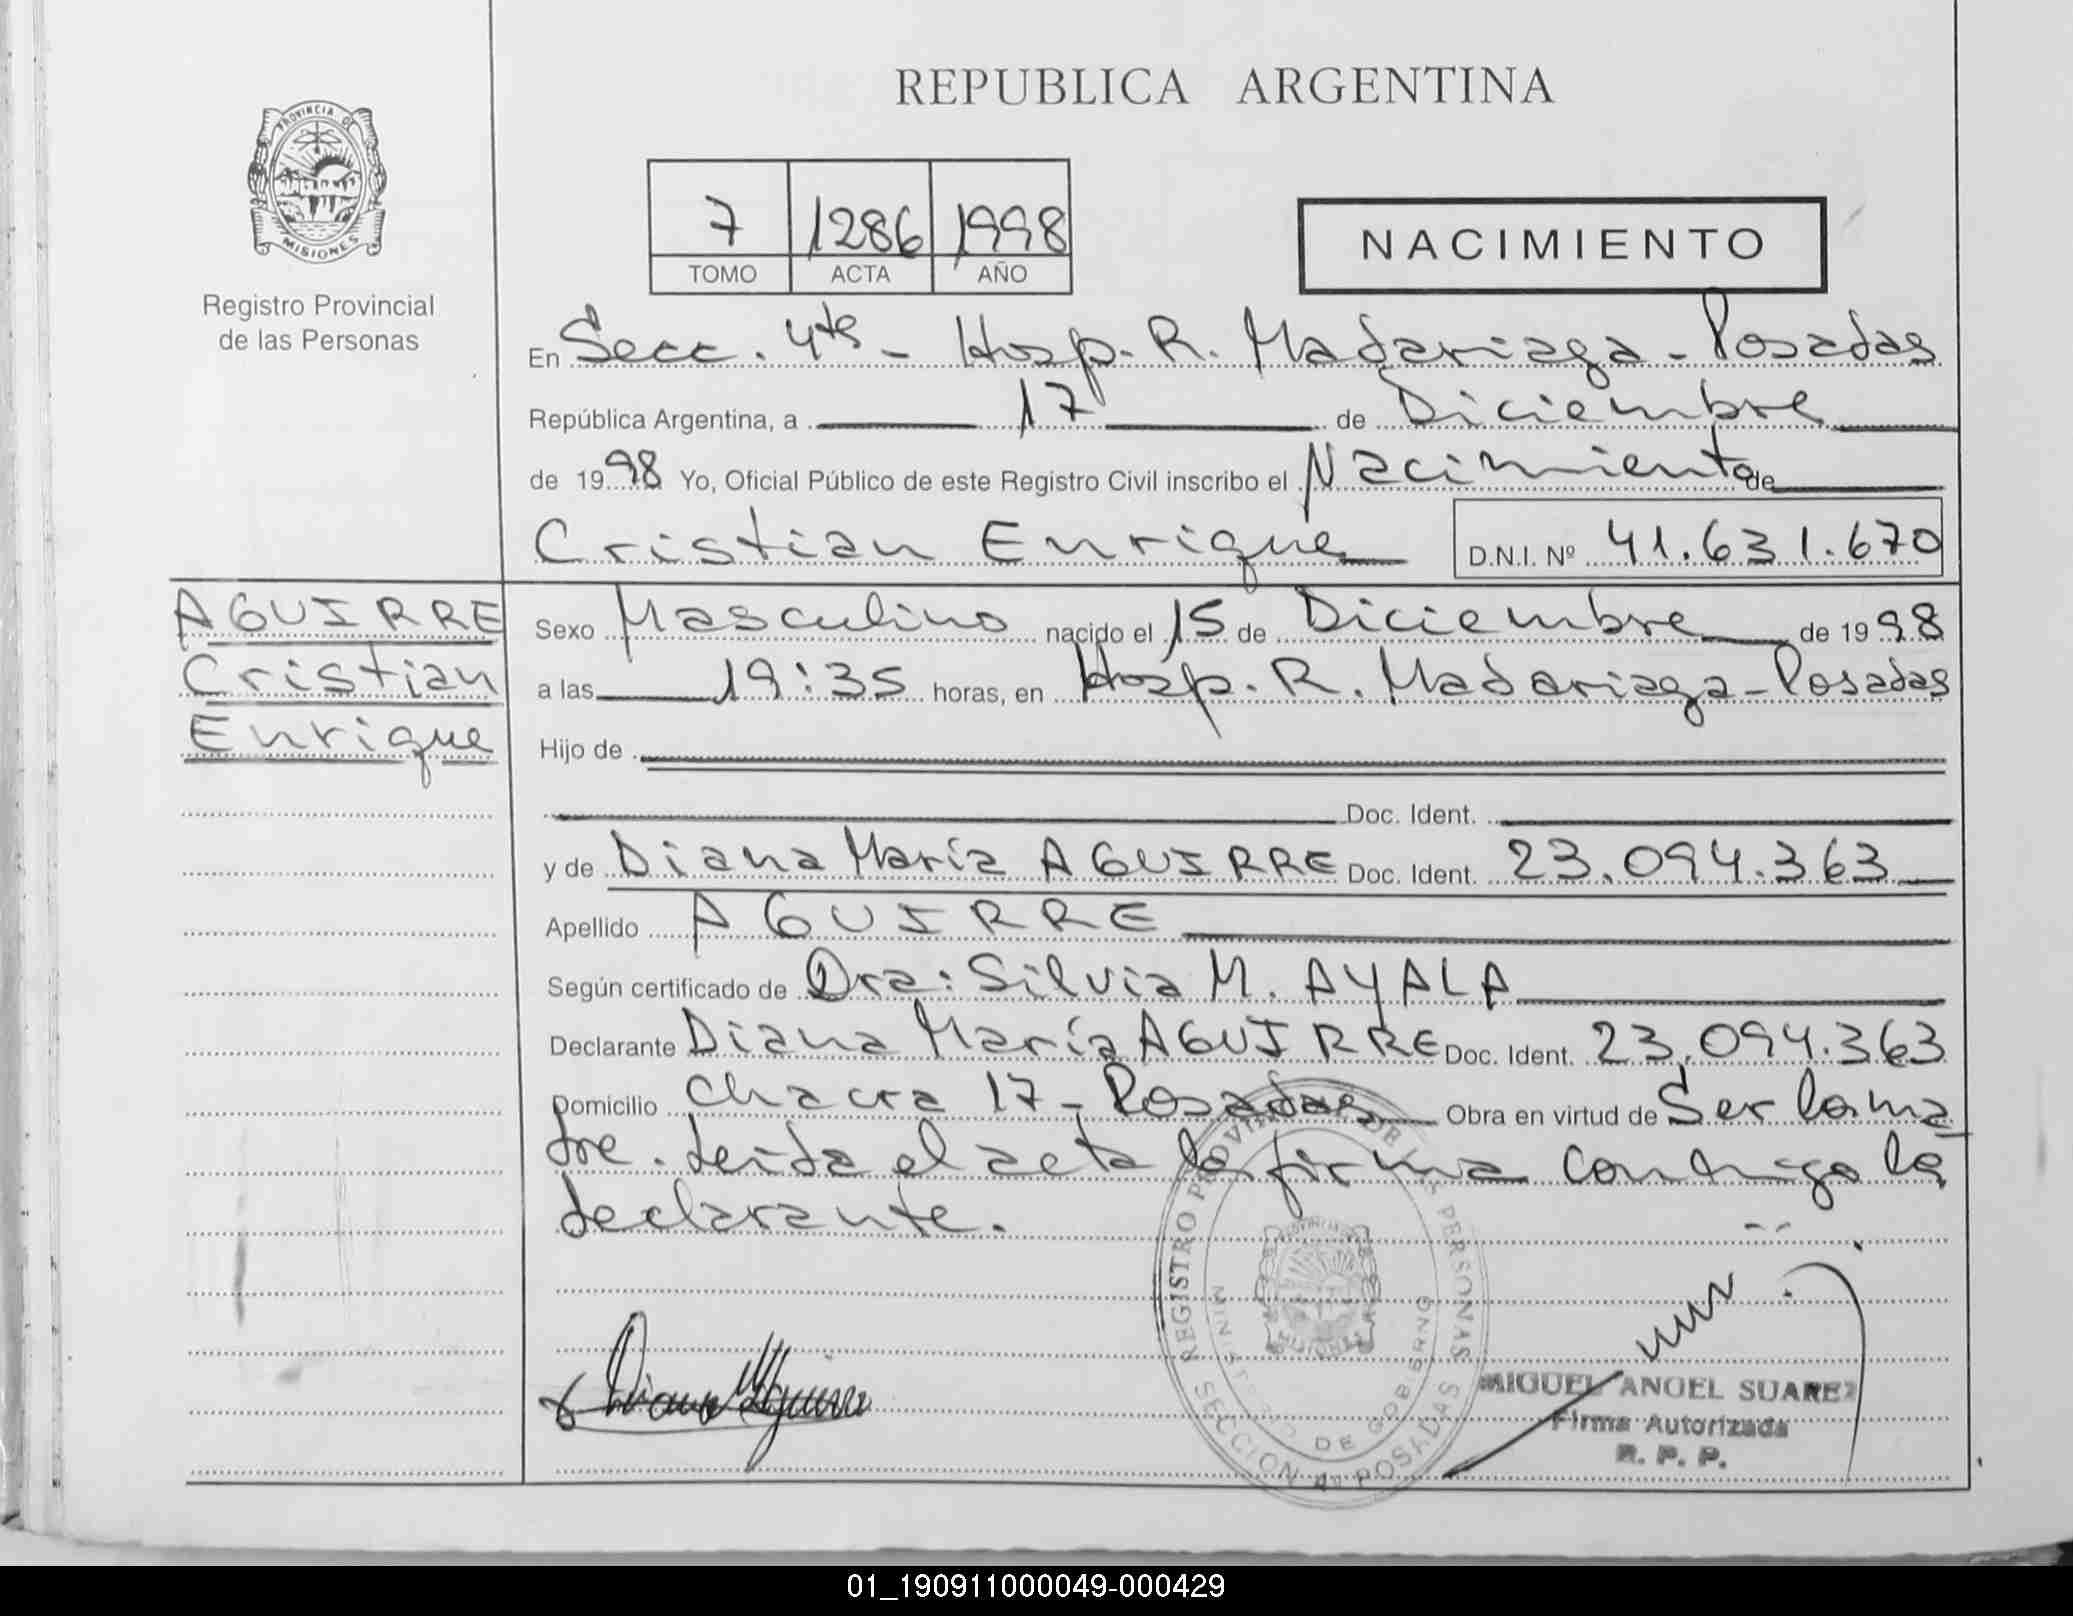 REPUBLICA ARGENTINA
PROVINCIA DE
MISIONES
Registro Provincial
de las Personas
7 1286 1998
TOMO ACTA AÑO
NACIMIENTO
En Secc. 4ta - Hosp. R. Madariaga - Posadas
República Argentina, a 17 de Diciembre
de 1998 Yo, Oficial Público de este Registro Civil inscribo el Nacimiento de
Cristian Enrique D.N.I. Nº 41.631.670
AGUIRRE
Cristian
Enrique
Sexo Masculino nacido el 15 de Diciembre de 1998
a las 19:35 horas, en Hosp. R. Madariaga - Posadas
Hijo de
Doc. Ident.
y de Diana María AGUIRRE Doc. Ident. 23.094.363
Apellido AGUIRRE
Según certificado de Dra: Silvia M. AYALA
Declarante Diana María AGUIRRE Doc. Ident. 23.094.363
Domicilio Chacra 17 - Posadas Obra en virtud de Ser la ma
dre. Leída el acta la firma conmigo la
declarante.
REGISTRO PROVINCIAL DE LAS PERSONAS
MINISTERIO DE GOBIERNO
SECCION 4ta POSADAS
Diana Aguirre
MIGUEL ANGEL SUAREZ
Firma Autorizada
R. P. P.
01_190911000049-000429